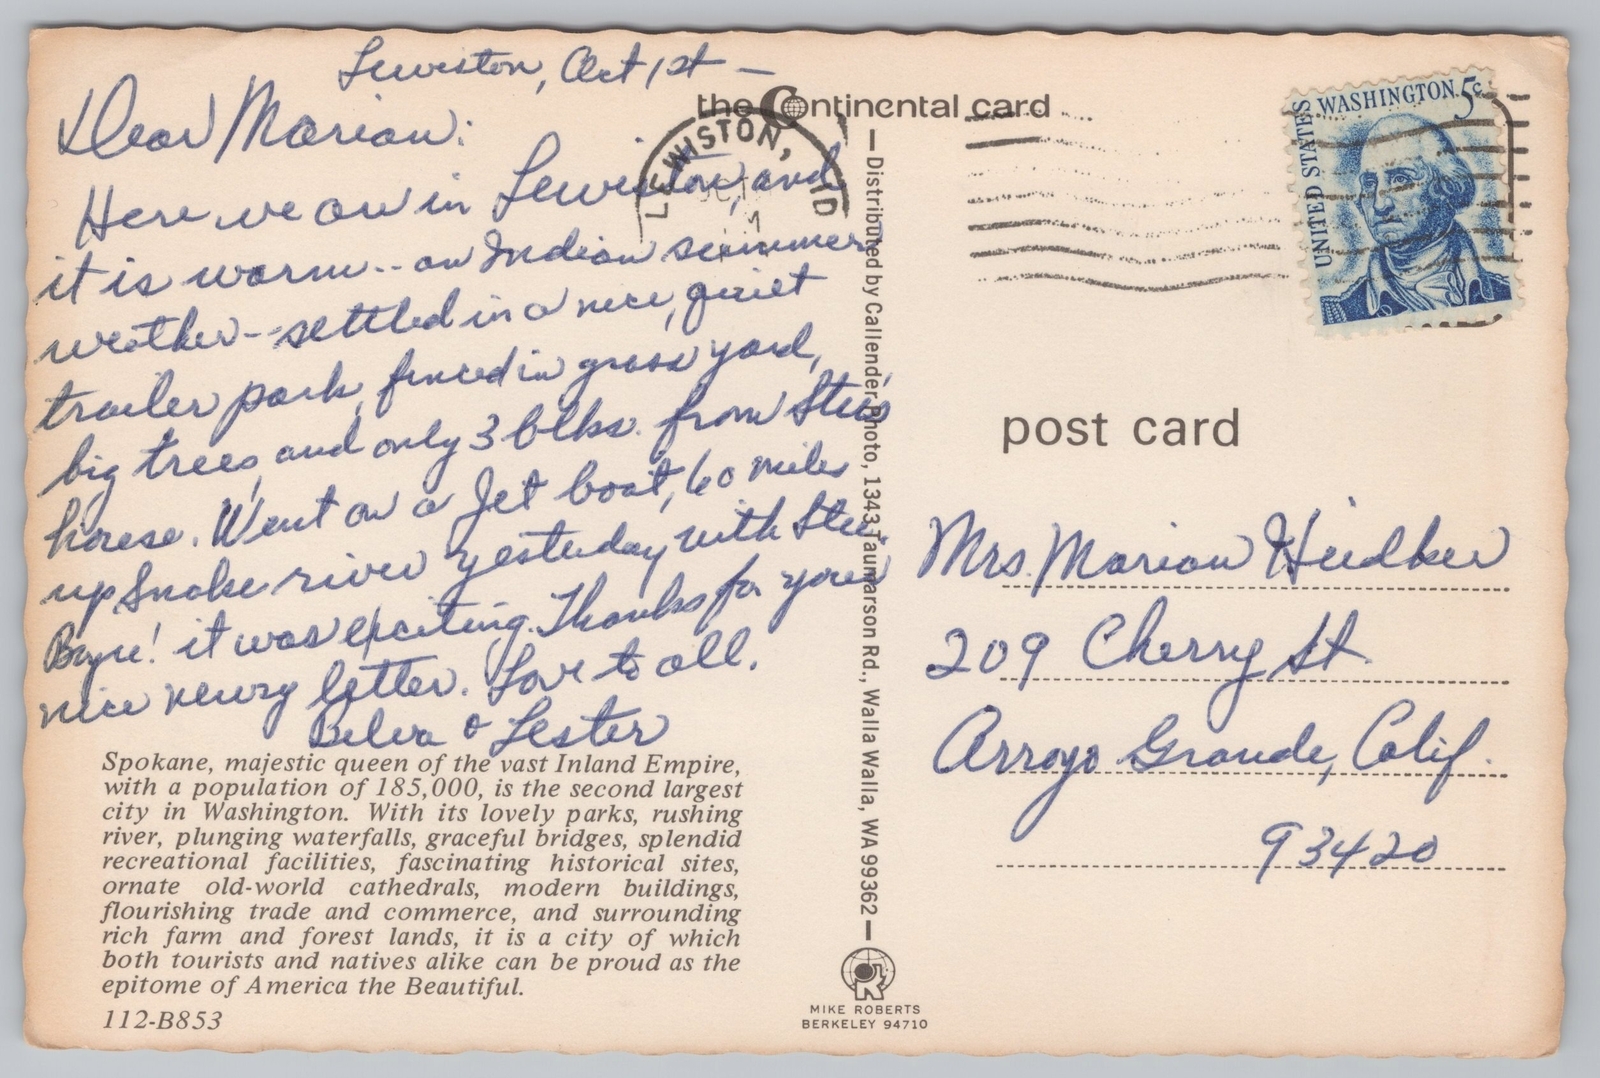 Lewiston, Oct 1st —
Dear Marian:
Here we are in Lewiston, and
it is warm -- an Indian summer
weather -- settled in a nice, quiet
trailer park, fenced in grass yard,
big trees, and only 3 blks. from Stu's
house. Went on a Jet boat, 60 miles
up Snake river yesterday with Stu.
! it was exciting. Thanks for your
nice newsy letter. Love to all.
Belva & Lester
Spokane, majestic queen of the vast Inland Empire,
with a population of 185,000, is the second largest
city in Washington. With its lovely parks, rushing
river, plunging waterfalls, graceful bridges, splendid
recreational facilities, fascinating historical sites,
ornate old-world cathedrals, modern buildings,
flourishing trade and commerce, and surrounding
rich farm and forest lands, it is a city of which
both tourists and natives alike can be proud as the
epitome of America the Beautiful.
112-B853
the Continental card
LEWISTON, ID
Distributed by Callender Photo, 1343 Taumarson Rd., Walla Walla, WA 99362
MIKE ROBERTS
BERKELEY 94710
WASHINGTON 5c
UNITED STATES
post card
Mrs. Marian
209 Cherry St.
Arroyo Grande, Calif.
93420